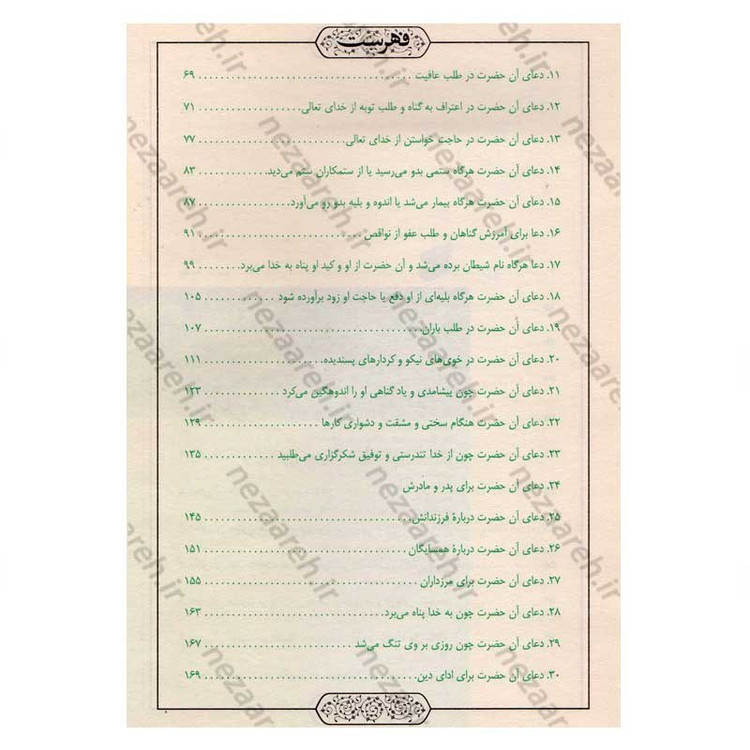 فهرست
۱۱. دعای آن حضرت در طلب عافیت ........................................ ۶۹
۱۲. دعای آن حضرت در اعتراف به گناه و طلب توبه از خدای تعالی .................. ۷۱
۱۳. دعای آن حضرت در حاجت خواستن از خدای تعالی ........................... ۷۷
۱۴. دعای آن حضرت هرگاه ستمی بدو می‌رسید یا از ستمکاران ستم می‌دید ............ ۸۳
۱۵. دعای آن حضرت هرگاه بیمار می‌شد یا اندوه و بلیه بدو رو می‌آورد ................ ۸۷
۱۶. دعا برای آمرزش گناهان و طلب عفو از نواقص ............................. ۹۱
۱۷. دعا هرگاه نام شیطان برده می‌شد و آن حضرت از او و کید او پناه به خدا می‌برد ....... ۹۹
۱۸. دعای آن حضرت هرگاه بلیه‌ای از او دفع یا حاجت او زود برآورده شود ............ ۱۰۵
۱۹. دعای آن حضرت در طلب باران ........................................ ۱۰۷
۲۰. دعای آن حضرت در خوی‌های نیکو و کردارهای پسندیده ..................... ۱۱۱
۲۱. دعای آن حضرت چون پیشامدی و یاد گناهی او را اندوهگین می‌کرد ............. ۱۲۳
۲۲. دعای آن حضرت هنگام سختی و مشقت و دشواری کارها ..................... ۱۲۹
۲۳. دعای آن حضرت چون از خدا تندرستی و توفیق شکرگزاری می‌طلبید ............. ۱۳۵
۲۴. دعای آن حضرت برای پدر و مادرش
۲۵. دعای آن حضرت دربارهٔ فرزندانش ...................................... ۱۴۵
۲۶. دعای آن حضرت دربارهٔ همسایگان ...................................... ۱۵۱
۲۷. دعای آن حضرت برای مرزداران ........................................ ۱۵۵
۲۸. دعای آن حضرت چون به خدا پناه می‌برد ................................. ۱۶۳
۲۹. دعای آن حضرت چون روزی بر وی تنگ می‌شد ............................ ۱۶۷
۳۰. دعای آن حضرت برای ادای دین ........................................ ۱۶۹
nezaareh.ir